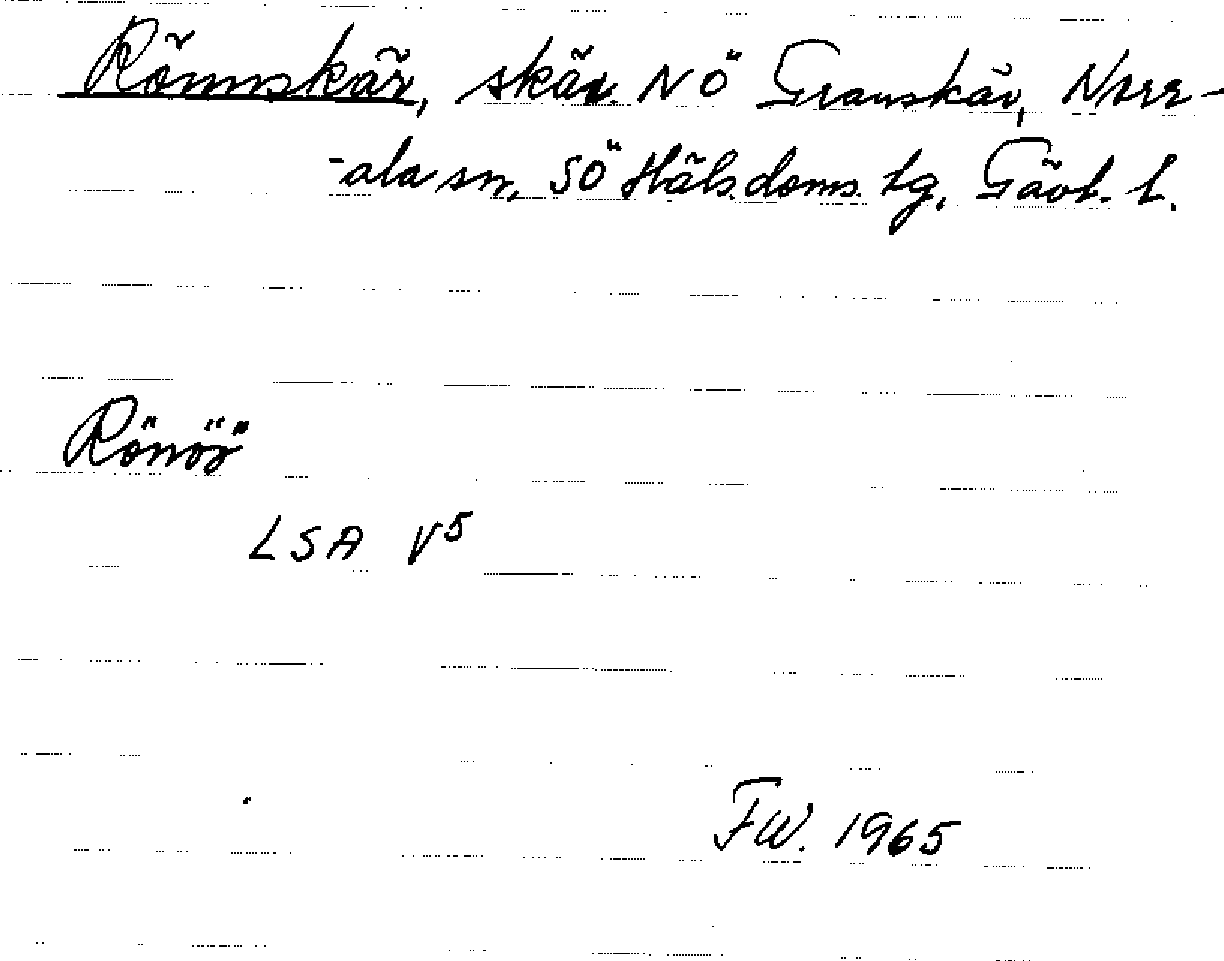 Rönnskär, skär NÖ Granskär, Norr-
-ala sn, SÖ Häls. doms. tg, Gävl. l.
Rönöö
LSA V5
FW. 1965